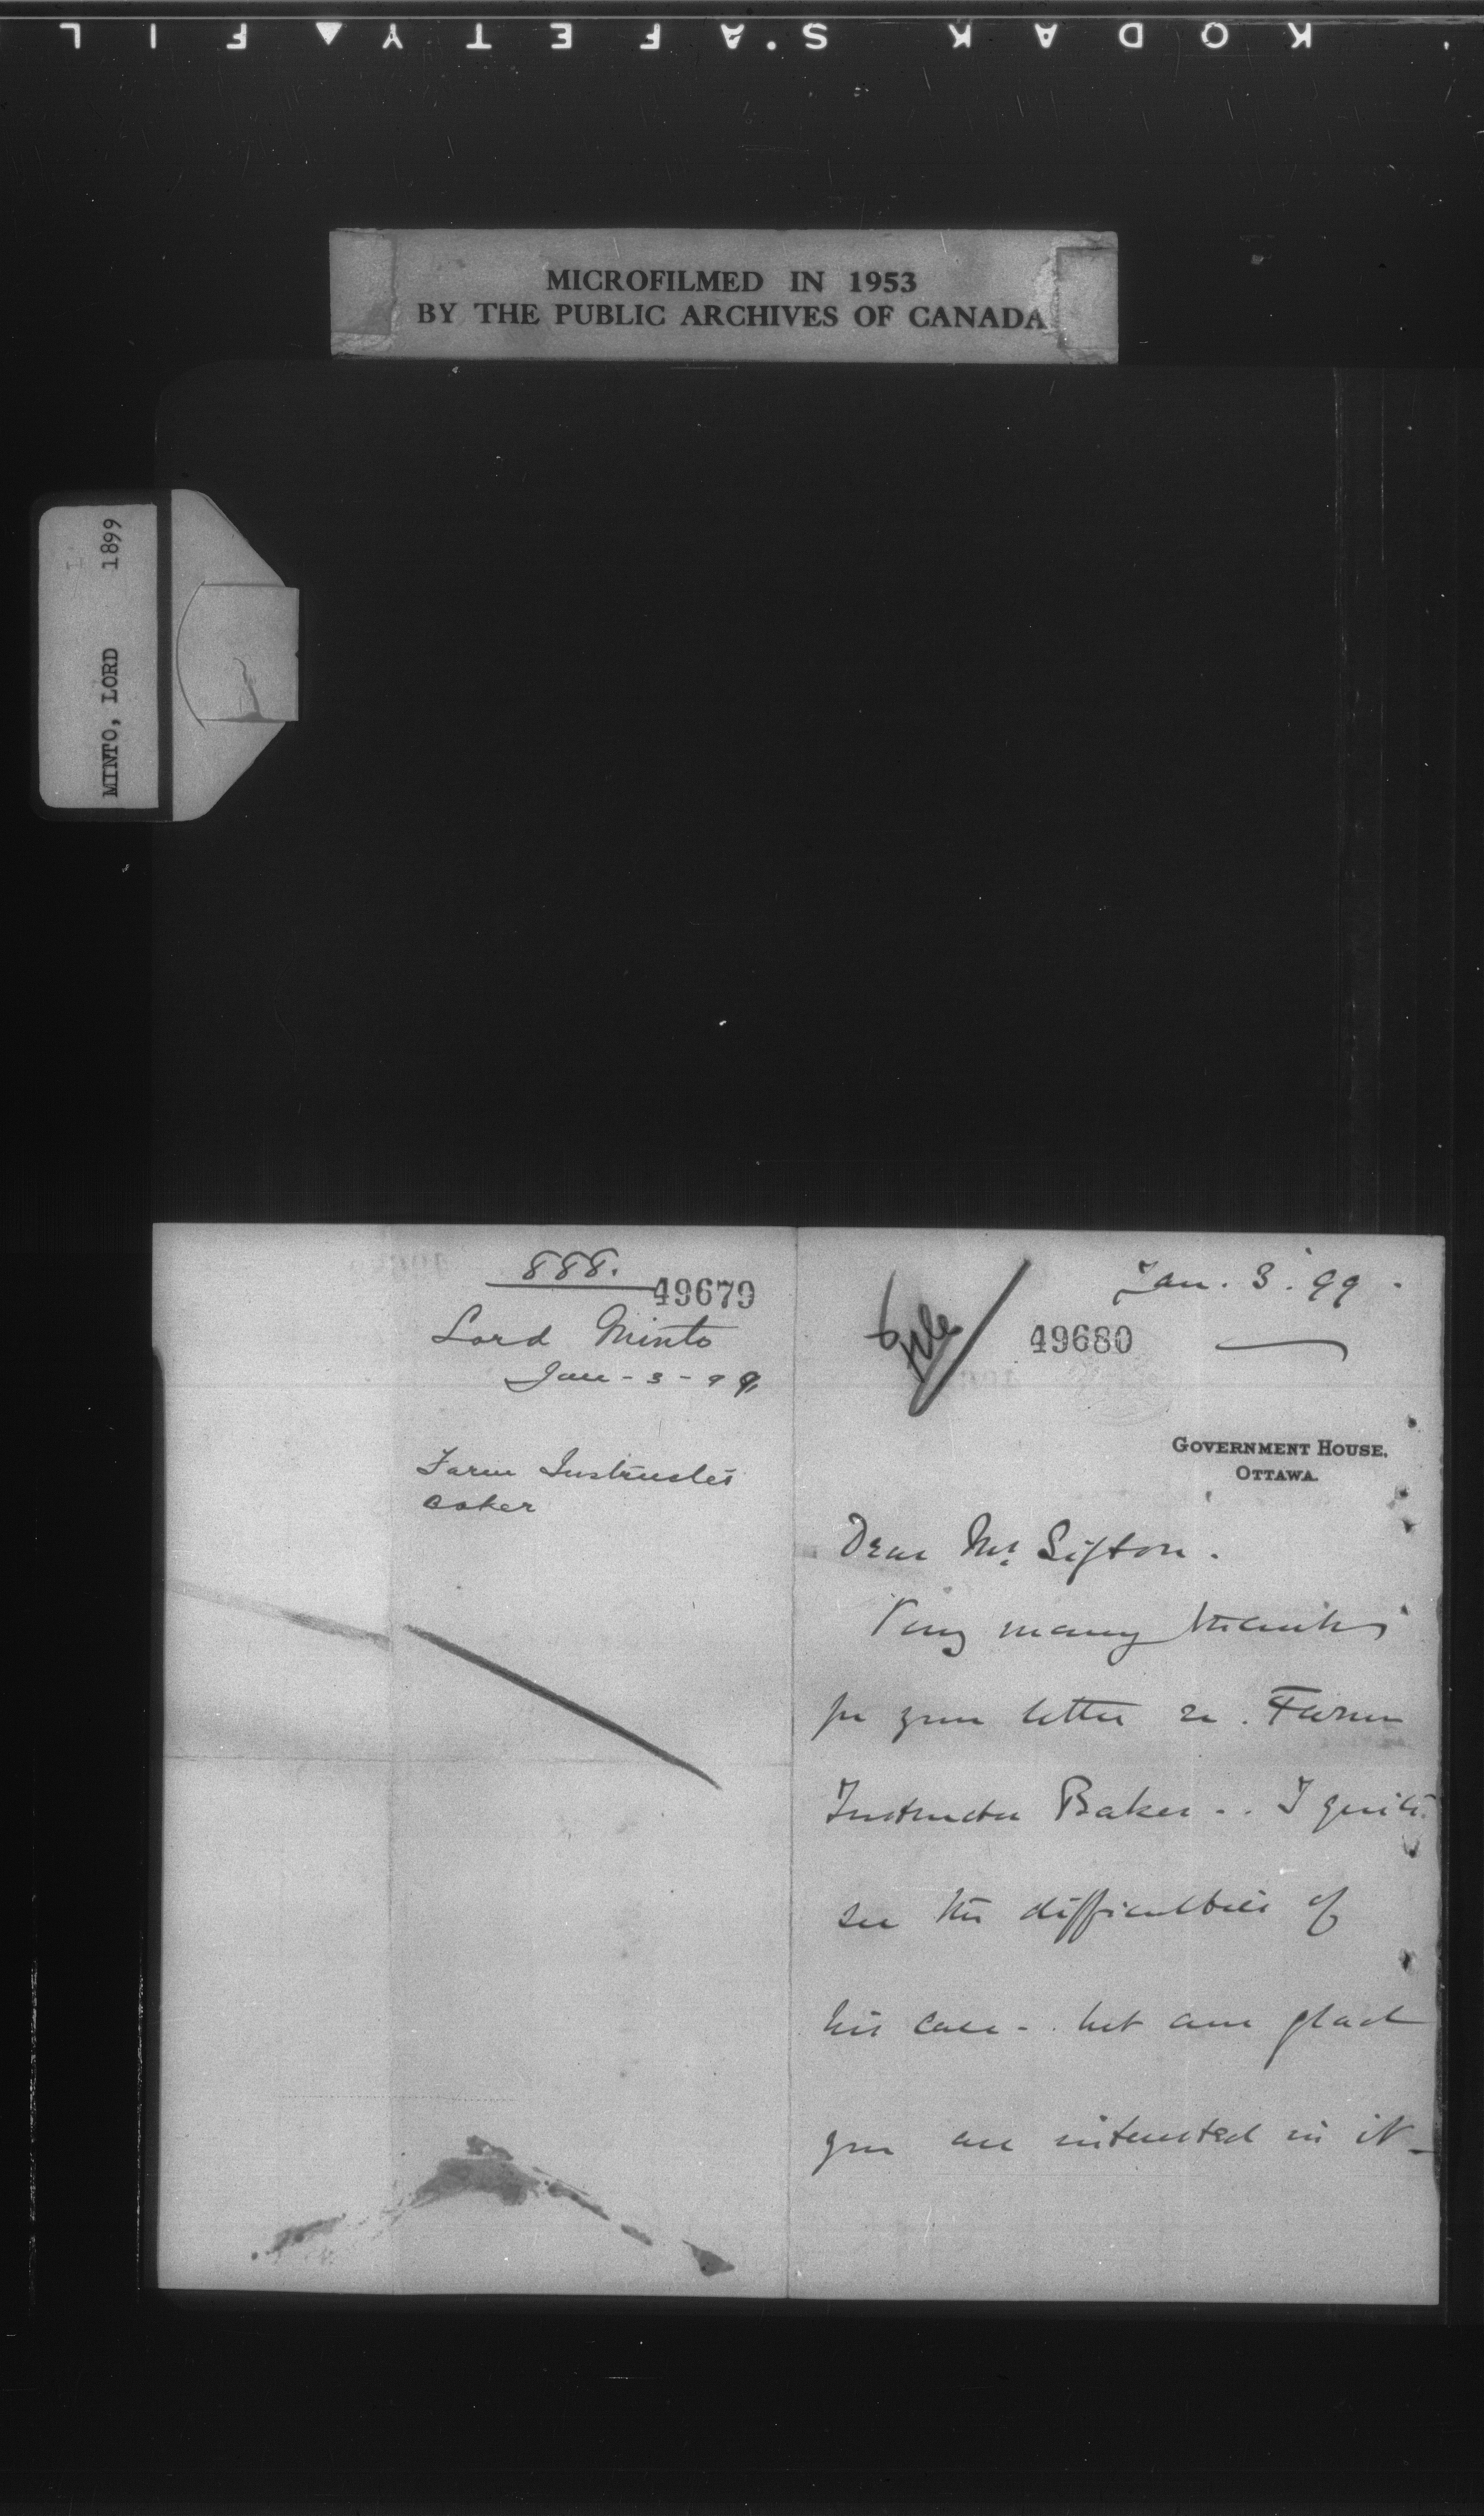 KODAK S'AFETY▲FIL
MICROFILMED IN 1953
BY THE PUBLIC ARCHIVES OF CANADA
MINTO, LORD 1899
888.
49679
Lord Minto
Jan - 3 - 99
Farm Instructor
Baker
File
Jan. 3. 99 -
49680
GOVERNMENT HOUSE,
OTTAWA.
Dear Mr. Sifton.
Very many thanks
for your letter re. Farm
Instructor Baker - . I quite
see the difficulties of
his case - . but am glad
you are interested in it -